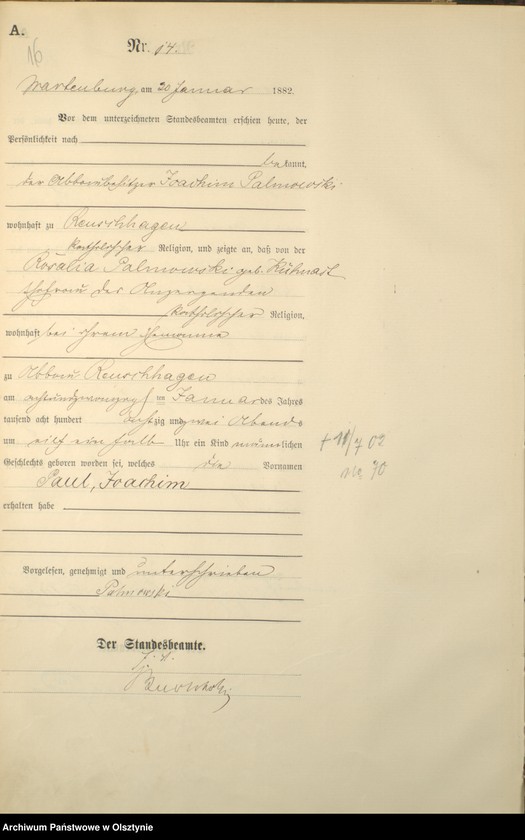 A.
16
Nr. 14.
Wartenburg, am 20 Januar 1882.
Vor dem unterzeichneten Standesbeamten erschien heute, der
Persönlichkeit nach
bekannt,
der Abbaubesitzer Joachim Palmowski
wohnhaft zu Reuschhagen
katholischer Religion, und zeigte an, daß von der
Rosalia Palmowski geb. Kuhnast
Ehefrau des Anzeigenden
katholischer Religion,
wohnhaft bei ihrem Ehemanne
zu Abbau Reuschhagen
am ten Januar des Jahres
tausend acht hundert achtzig und zwei Abends
um eilf ein halb Uhr ein Kind männlichen
Geschlechts geboren worden sei, welches die Vornamen
Paul, Joachim
erhalten habe
Vorgelesen, genehmigt und unterschrieben
Palmowski
Der Standesbeamte.
+ 11/7 02
Nr 70
Archiwum Państwowe w Olsztynie